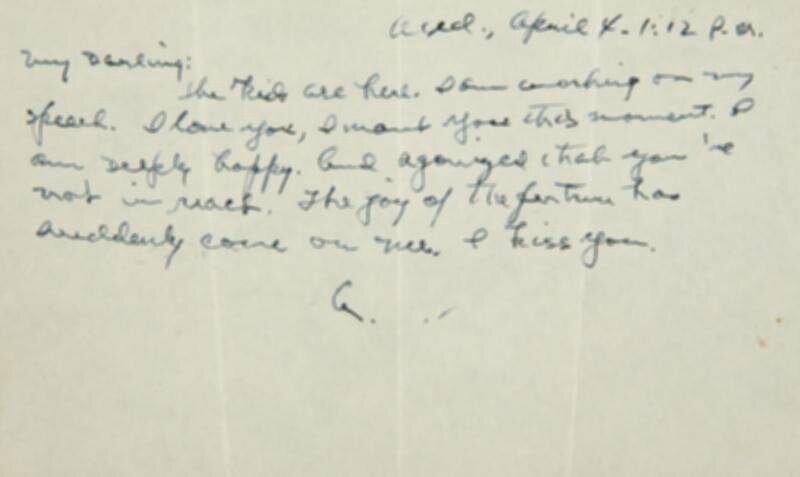 Wed., April 4. 1:12 P.M.
My Darling:
The kids are here. I am working on my
speech. I love you, I want you this moment. I
am deeply happy. And agonized that you're
not in reach. The joy of the fortune has
suddenly come on me. I kiss you.
A.